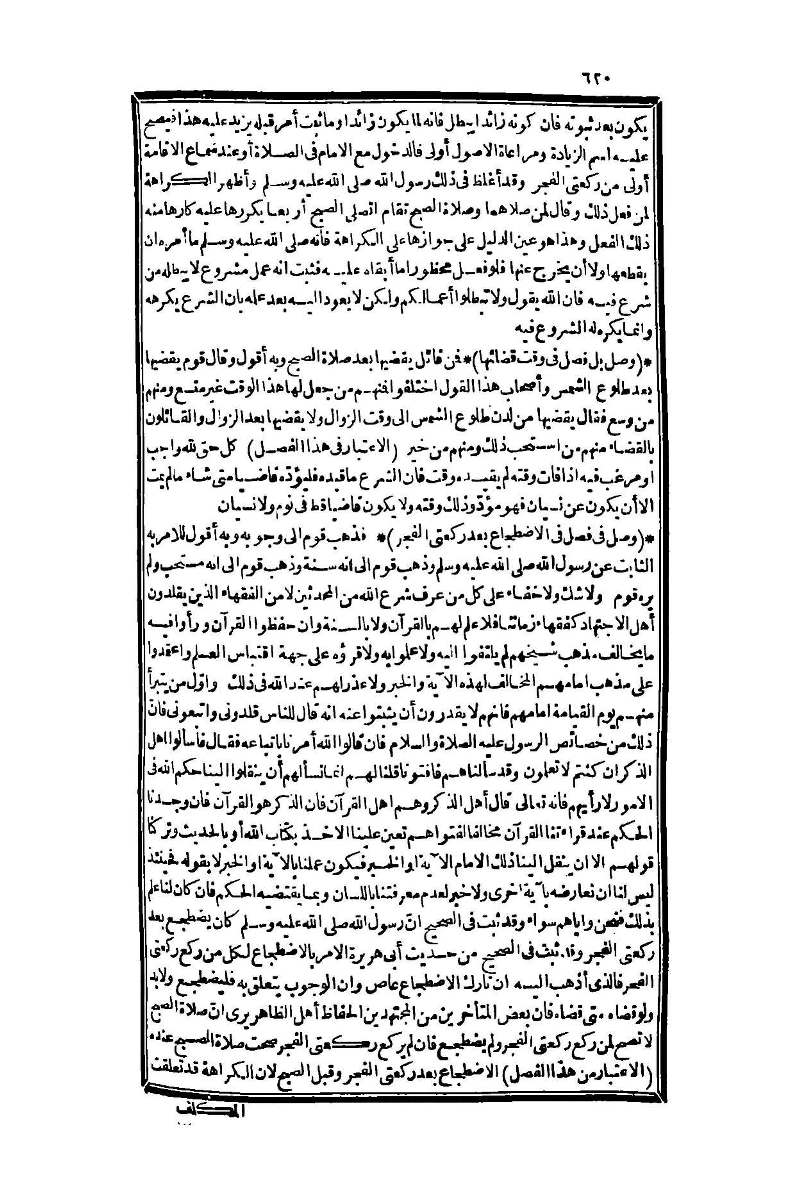 ٦٢٠
يكون بعد ثبوته فان كونه زائدا يبطل فانه لما يكون زائدا وما ثبت أمر قبله يزيد عليه هذا فيصح
عليه اسم الزيادة ومراعاة الاصول أولى فالدخول مع الامام فى الصلاة أو عند سماع الاقامة
أولى من ركعتى الفجر وقد أغلظ فى ذلك رسول الله صلى الله عليه وسلم وأظهر الكراهة
لمن فعل ذلك وقال لمن صلاهما وصلاة الصبح تقام أتصلى الصبح أربعا يكررها عليه كارها منه
ذلك الفعل وهذا هو عين الدليل على جوازها على الكراهة فانه صلى الله عليه وسلم ما أمره ان
يقطعها ولا أن يخرج عنها فلو فعل محظورا ما أبقاه عليه فثبت انه عمل مشروع لا يبطله من
شرع فيه فان الله يقول ولا تبطلوا أعمالكم ولكن لا يعود اليه بعد علمه بان الشرع يكرهه
وانما يكره له الشروع فيه
*(وصل بل فصل فى وقت قضائها)* فمن قائل يقضيها بعد صلاة الصبح وبه أقول وقال قوم يقضيها
بعد طلوع الشمس وأصحاب هذا القول اختلفوا فمنهم من جعل لها هذا الوقت غير متسع ومنهم
من وسع فقال يقضيها من لدن طلوع الشمس الى وقت الزوال ولا يقضيها بعد الزوال والقائلون
بالقضاء منهم من استحب ذلك ومنهم من خير (الاعتبار فى هذا الفصل) كل حق لله واجب
او مرغب فيه اذا فات وقته لم يقيده وقت فان الشرع ما قيده فليؤده قاضيا متى شاء ما لم يمت
الا أن يكون عن نسيان فهو مؤد وذلك وقته ولا يكون قاضيا قط فى نوم ولا نسيان
*(وصل فى فصل فى الاضطجاع بعد ركعتى الفجر)* فذهب قوم الى وجوبه وبه أقول للامر به
الثابت عن رسول الله صلى الله عليه وسلم وذهب قوم الى انه سنة وذهب قوم الى انه مستحب ولم
يره قوم ولا شك ولا خفاء على كل من عرف شرع الله من المحدثين لا من الفقهاء الذين يقلدون
أهل الاجتهاد كفقهاء زماننا فلا علم لهم بالقرآن ولا بالسنة وان حفظوا القرآن ورأوا فيه
ما يخالف مذهب شيخهم لم يلتفوا اليه ولا عملوا به ولا قرؤه على جهة اقتباس العلم واعتمدوا
على مذهب امامهم المخالف لهذه الآية والخبر ولا عذر لهم عند الله فى ذلك واول من يتبرأ
منهم يوم القيامة امامهم فانهم لا يقدرون أن يثبتوا عنه انه قال للناس قلدونى واتبعونى فان
ذلك من خصائص الرسول عليه الصلاة والسلام فان قالوا الله أمرنا باتباعه فقال فاسألوا اهل
الذكر ان كنتم لا تعلمون وقد سألناهم فافتونا قلنا لهم انما نسألهم أن ينقلوا الينا حكم الله فى
الامور لا رأيهم فانه تعالى قال أهل الذكر وهم اهل القرآن فان الذكر هو القرآن فان وجدنا
الحكم عند قراءتنا القرآن مخالفا لفتواهم تعين علينا الاخذ بكتاب الله أو بالحديث وتركنا
قولهم الا ان ينقل الينا ذلك الامام الآية او الخبر فيكون عملنا بالآية او الخبر لا بقوله فحينئذ
ليس لنا ان نعارضه بآية اخرى ولا خبر لعدم معرفتنا باللسان وبما يقتضيه الحكم فان كان لنا علم
بذلك فنحن واياهم سواء وقد ثبت فى الصحيح ان رسول الله صلى الله عليه وسلم كان يضطجع بعد
ركعتى الفجر وقد ثبت فى الصحيح من حديث أبى هريرة الامر بالاضطجاع لكل من ركع ركعتى
الفجر فالذى أذهب اليه ان تارك الاضطجاع عاص وان الوجوب يتعلق به فليضطجع ولا بد
ولو قضاه متى قضاه فان بعض المتأخرين من المجتهدين الحفاظ أهل الظاهر يرى ان صلاة الصبح
لا تصح لمن ركع ركعتى الفجر ولم يضطجع فان لم يركع ركعتى الفجر صحت صلاة الصبح عنده
(الاعتبار من هذا الفصل) الاضطجاع بعد ركعتى الفجر وقبل الصبح لان الكراهة قد تعلقت
المكلف